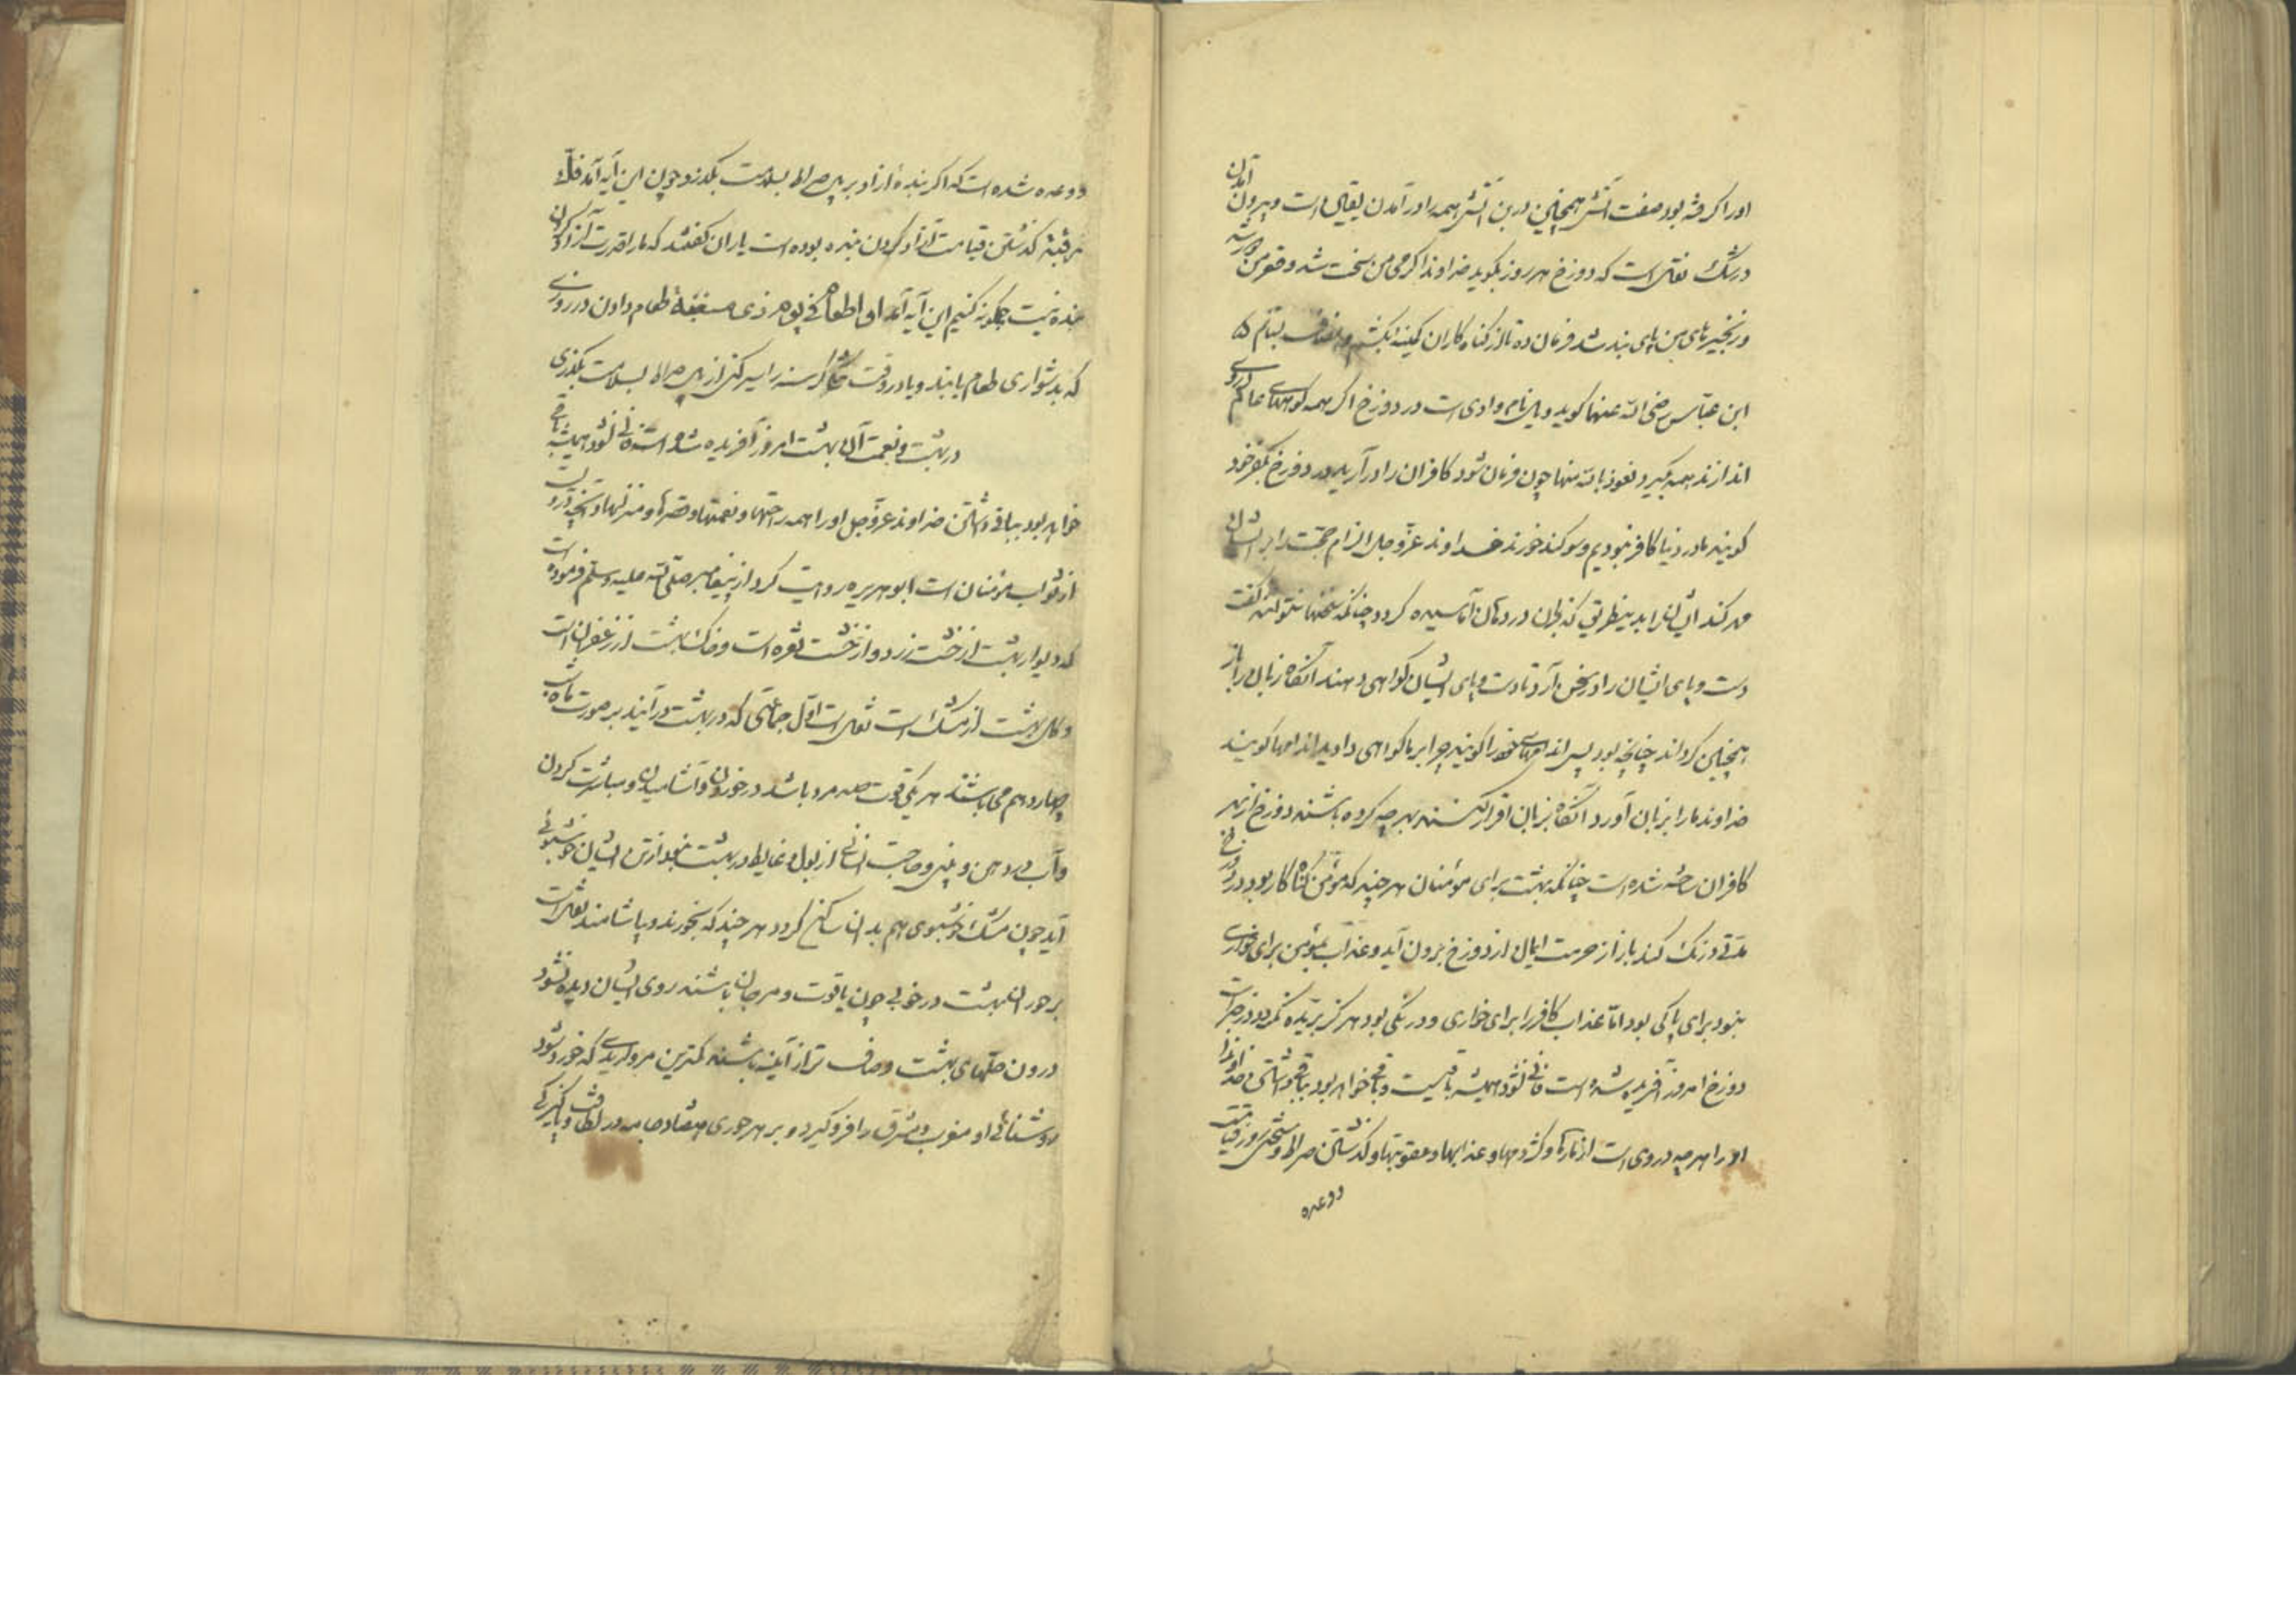 اورا گرفته بود صفت آتش همچنین درین آتش همه را در آمدن یقین است و بیرون آمدن
در شک نقل است که دوزخ هر روز بگوید خداوندا گرمی من سخت شد و قعر من
و زنجیرهای من پای بند شد فرمان ده تا از گناه کاران کینه بکشم
ابن عباس رضی الله عنهما گوید ویل نام وادی است در دوزخ اگر همه کوههای عالم در وی
اندازند همه بگیرد نعوذ بالله منها چون فرمان شود کافران را در آرید در دوزخ بکفر خود
گویند ما در دنیا کافر نبودیم و سوگند خورند خداوند عز و جل الزام حجت را بر ایشان
مهر کند ایشان را بدین طریق که زبان در دهان آماسیده گردد چنانکه سخنها نتوانند گفت
دست و پای ایشان را در سخن آرد تا دست و پای ایشان گواهی دهند آنگاه زبان را باز
همچنین گرداند چنانچه بود پس اندامهای خود را گویند چرا بر ما گواهی دادید اندامها گویند
خداوند ما را بزبان آورد آنگاه بزبان اقرار کنند بهر چه کرده باشند دوزخ از بهر
کافران ساخته شده است چنانکه بهشت برای مومنان هر چند که مؤمن گناه کار بود در دوزخ
مدتی درنگ کند باز از حرمت ایمان از دوزخ برون آید و عذاب مؤمن برای خواری
نبود برای پاکی بود اما عذاب کافر را برای خواری و درنگی بود هرگز بریده نگردد در خبر است
دوزخ امروز آفریده شده است فانی نشود همیشه باقیست و باقی خواهد بود بباقی داشتن خداوند
او را هر چه در وی است از مارها و کژدمها و عذابها و عقوبتها و گذشتن صراط و سختی روز قیامت
و وعده
و وعده شده است که اگر بنده آزاد بر پل صراط بسلامت بگذرد چون این آیه آمد فك
رقبة گذشتن قیامت آزاد کردن بنده بوده است یاران گفتند که ما را قدرت آزاد کردن
بنده نیست چگونه کنیم این آیه آمد او اطعام فی یوم ذی مسغبة طعام دادن در روزی
که بدشواری طعام یابند و یا در وقت گرسنه را سیر کنی از پل صراط بسلامت بگذری
در بهشت و نعمت آن بهشت امروز آفریده شده است فانی نشود همیشه باقی
خواهد بود بباقی داشتن خداوند عز و جل او را همه راحتها و نعمتها و قصرها و منزلها و آنچه درو است
از ثواب مؤمنان است ابو هریره روایت کرد از پیغامبر صلی الله علیه وسلم فرموده است
که دیوار بهشت از خشت زر و از خشت نقره است و خاک بهشت از زعفران است
و گل بهشت از مشک است نقل است اول جماعتی که در بهشت در آیند بر صورت ماه
چهاردهم می باشند هر یکی قوت صد مرد باشد در خوردن و آشامیدن و مباشرت کردن
و آب دهن و بینی و حاجت انسانی از بول و غایط در بهشت نبود از تن ایشان خوشبوئی
آید چون مشک خوشبوی هم بدان ساکن گردد هر چند که بخورند و بیاشامند نقل است
بر حوران بهشت در خوبی چون یاقوت و مرجان باشند روی ایشان دیده شود
درون حلّهای بهشت و صاف تر از آینه باشند کمترین مرواریدی که خورد شود
روشنائی او مغرب و مشرق را فرو گیرد و بر هر حوری هفتاد جامه در لطافت و پاکیزگی